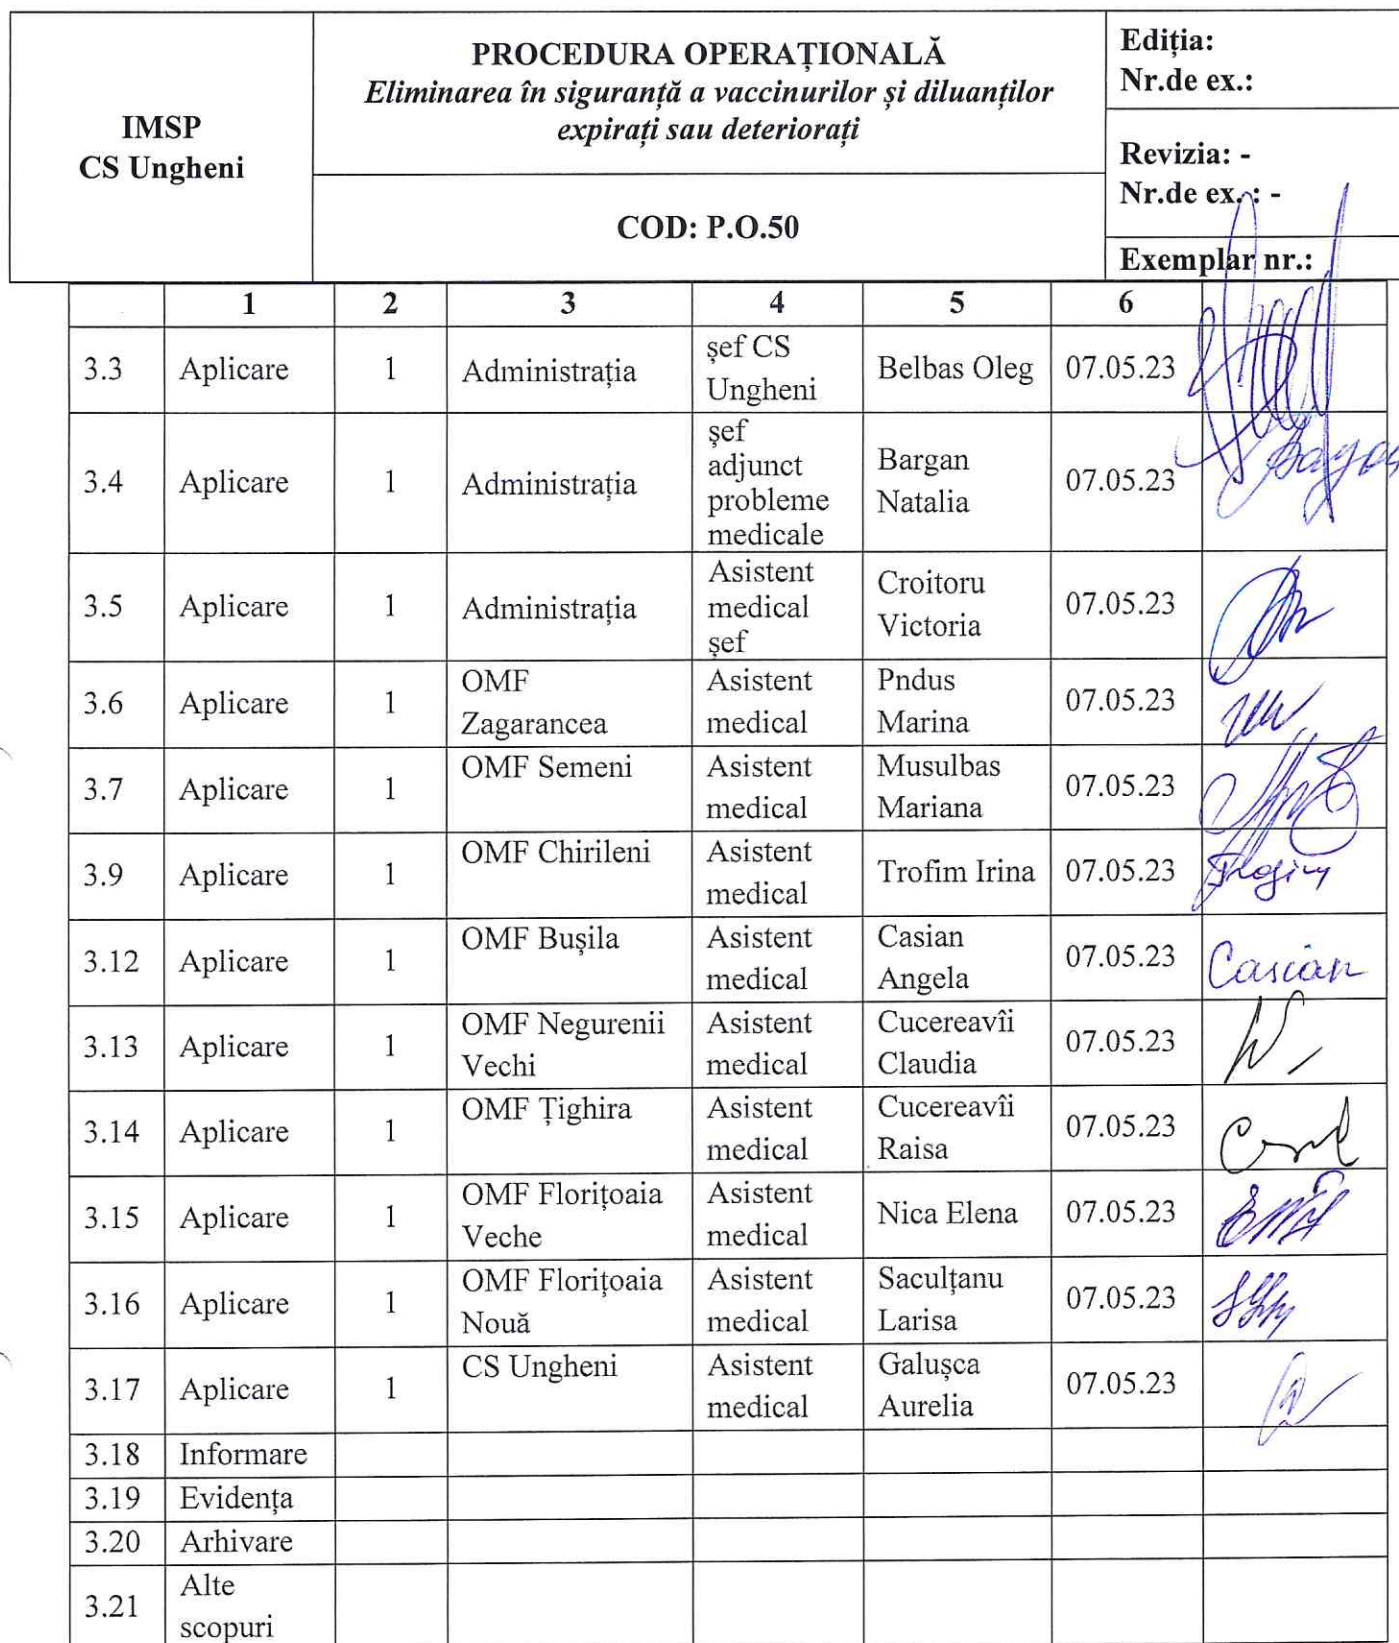 IMSP
CS Ungheni
PROCEDURA OPERAȚIONALĂ
Eliminarea în siguranță a vaccinurilor și diluanților
expirați sau deteriorați
COD: P.O.50
Ediția:
Nr.de ex.:
Revizia: -
Nr.de ex. : -
Exemplar nr.:
1 2 3 4 5 6
3.3 Aplicare 1 Administrația șef CS Ungheni Belbas Oleg 07.05.23
3.4 Aplicare 1 Administrația șef adjunct probleme medicale Bargan Natalia 07.05.23
3.5 Aplicare 1 Administrația Asistent medical șef Croitoru Victoria 07.05.23
3.6 Aplicare 1 OMF Zagarancea Asistent medical Pndus Marina 07.05.23
3.7 Aplicare 1 OMF Semeni Asistent medical Musulbas Mariana 07.05.23
3.9 Aplicare 1 OMF Chirileni Asistent medical Trofim Irina 07.05.23
3.12 Aplicare 1 OMF Bușila Asistent medical Casian Angela 07.05.23 Casian
3.13 Aplicare 1 OMF Negurenii Vechi Asistent medical Cucereavîi Claudia 07.05.23
3.14 Aplicare 1 OMF Țighira Asistent medical Cucereavîi Raisa 07.05.23
3.15 Aplicare 1 OMF Florițoaia Veche Asistent medical Nica Elena 07.05.23
3.16 Aplicare 1 OMF Florițoaia Nouă Asistent medical Saculțanu Larisa 07.05.23
3.17 Aplicare 1 CS Ungheni Asistent medical Galușca Aurelia 07.05.23
3.18 Informare
3.19 Evidența
3.20 Arhivare
3.21 Alte scopuri